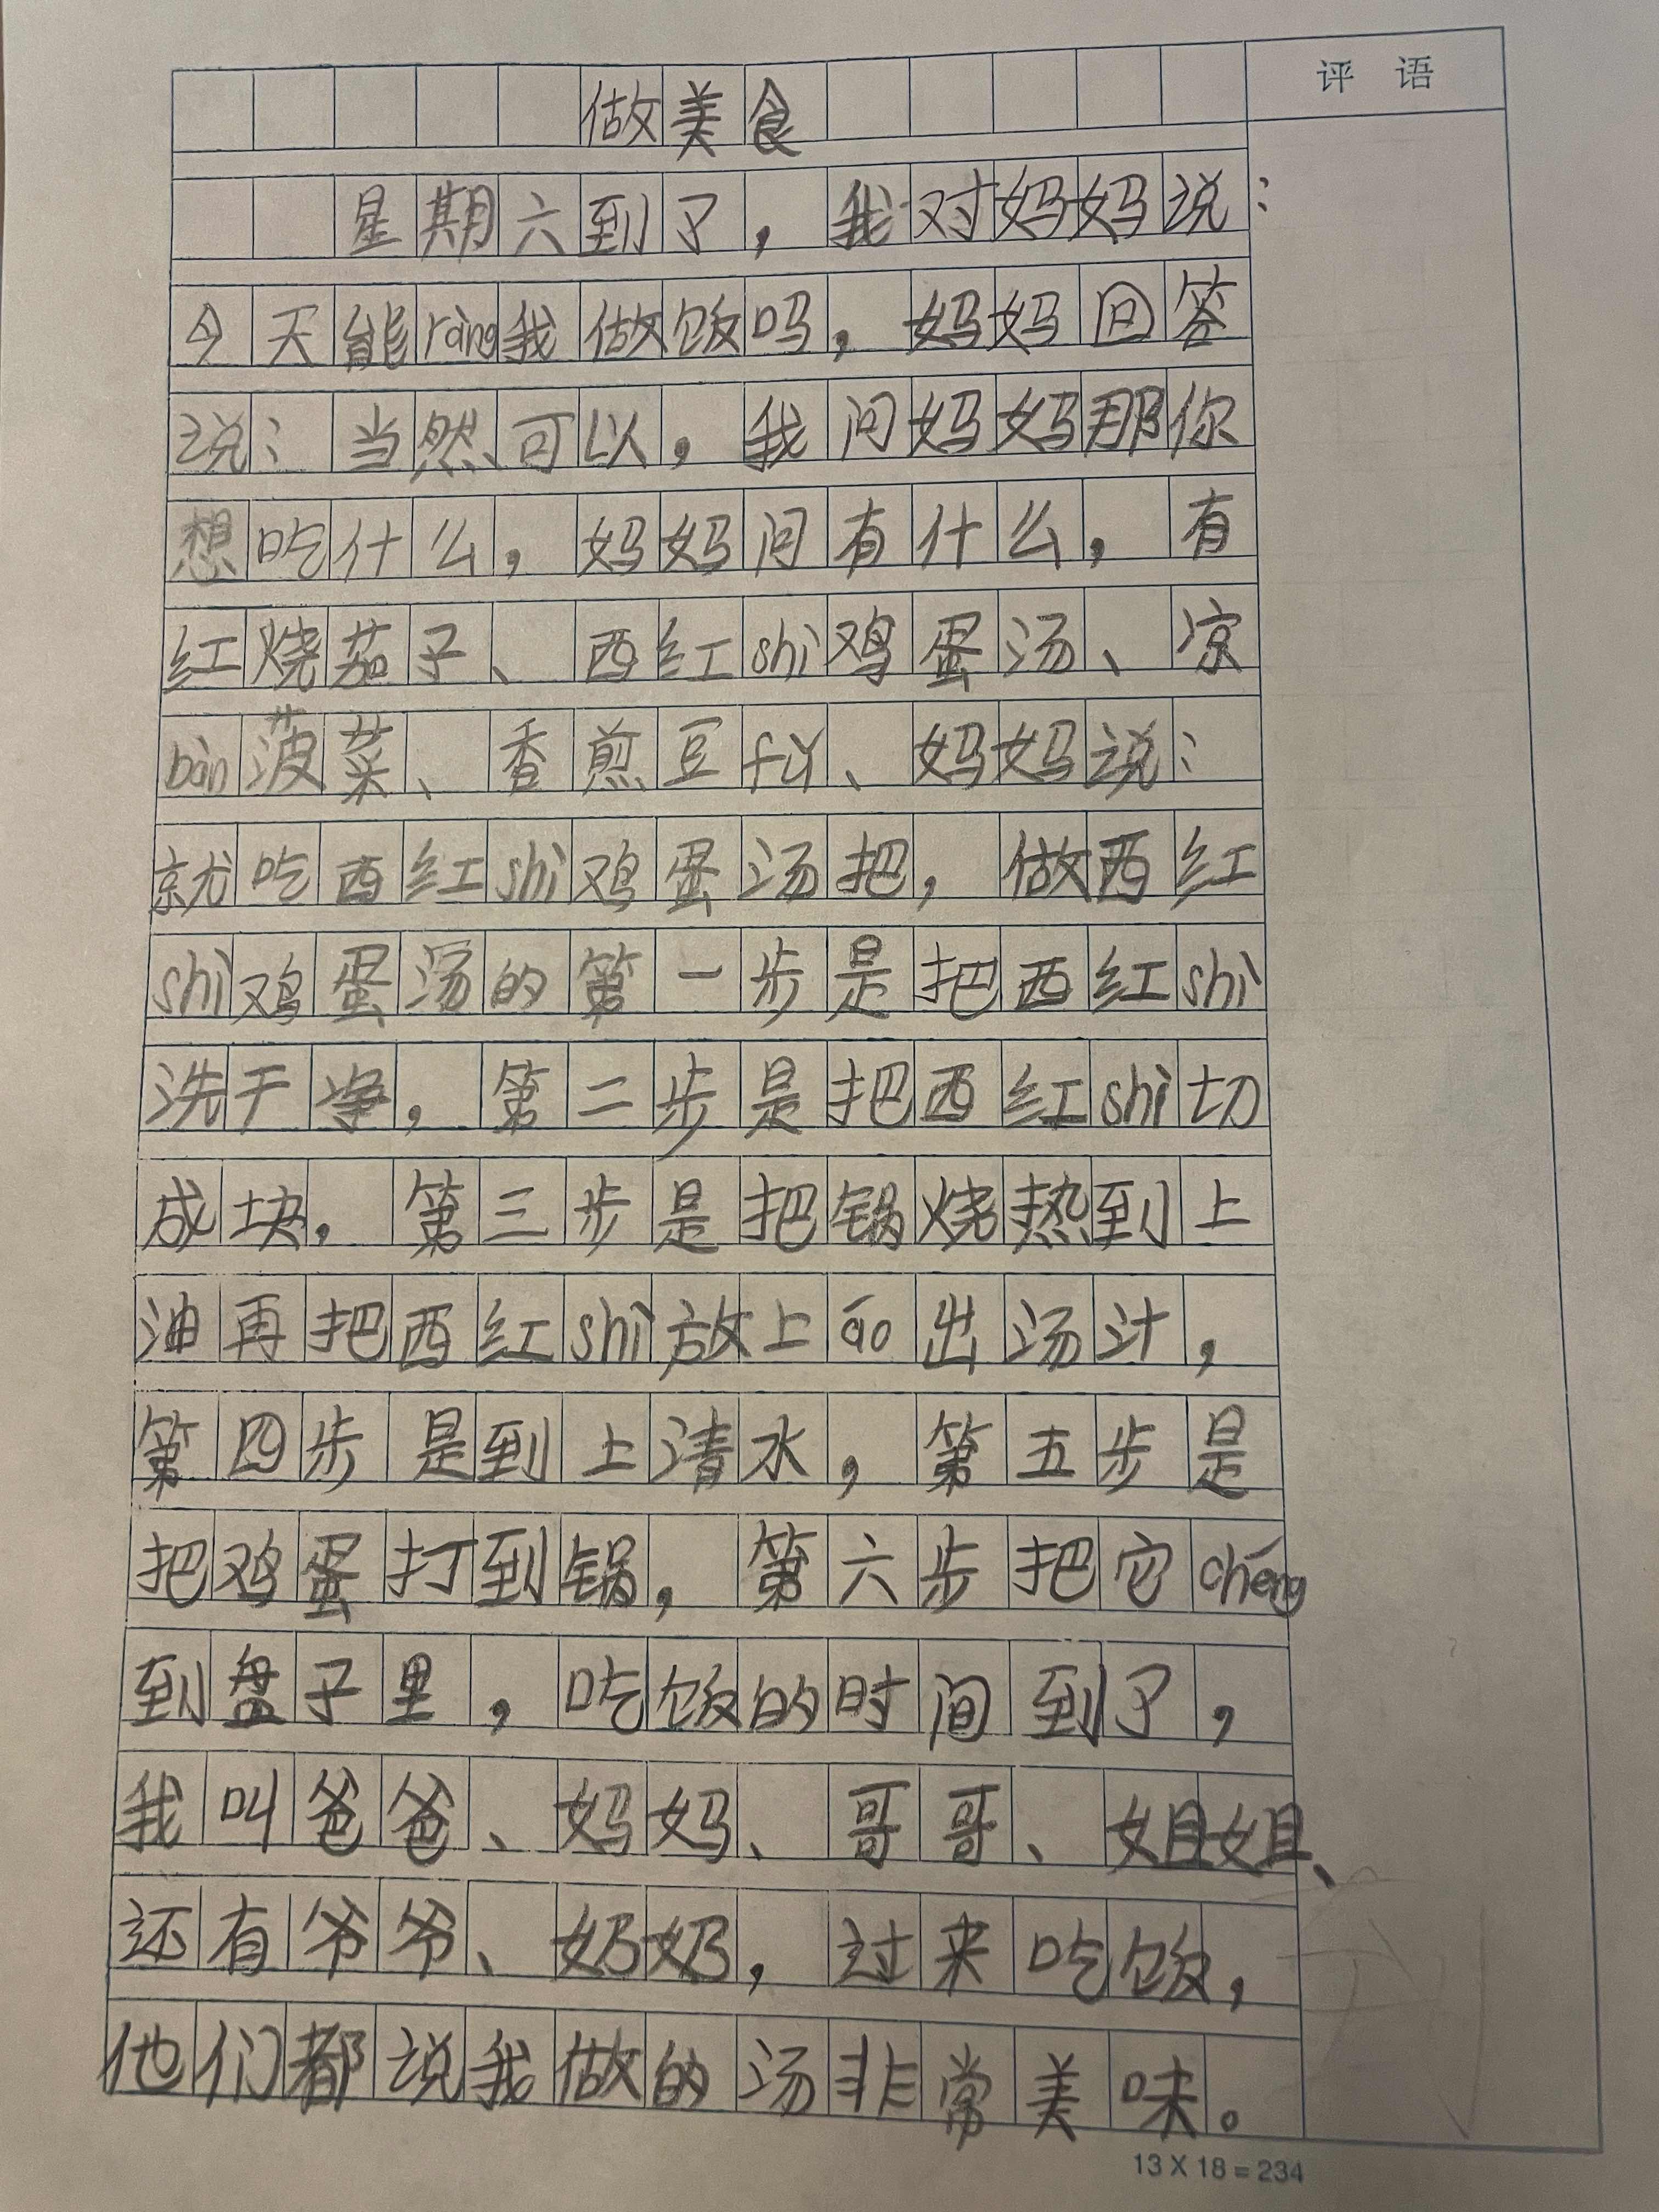 评 语
做美食
星期六到了，我对妈妈说：
今天能ràng我做饭吗，妈妈回答
说：当然可以，我问妈妈那你
想吃什么，妈妈问有什么，有
红烧茄子、西红shì鸡蛋汤、凉
bàn菠菜、香煎豆fǔ、妈妈说：
就吃西红shì鸡蛋汤把，做西红
shì鸡蛋汤的第一步是把西红shì
洗干净，第二步是把西红shì切
成块，第三步是把锅烧热到上
油再把西红shì放上āo出汤汁，
第四步是到上清水，第五步是
把鸡蛋打到锅，第六步把它chéng
到盘子里，吃饭的时间到了，
我叫爸爸、妈妈、哥哥、姐姐、
还有爷爷、奶奶，过来吃饭，
他们都说我做的汤非常美味。
13×18=234